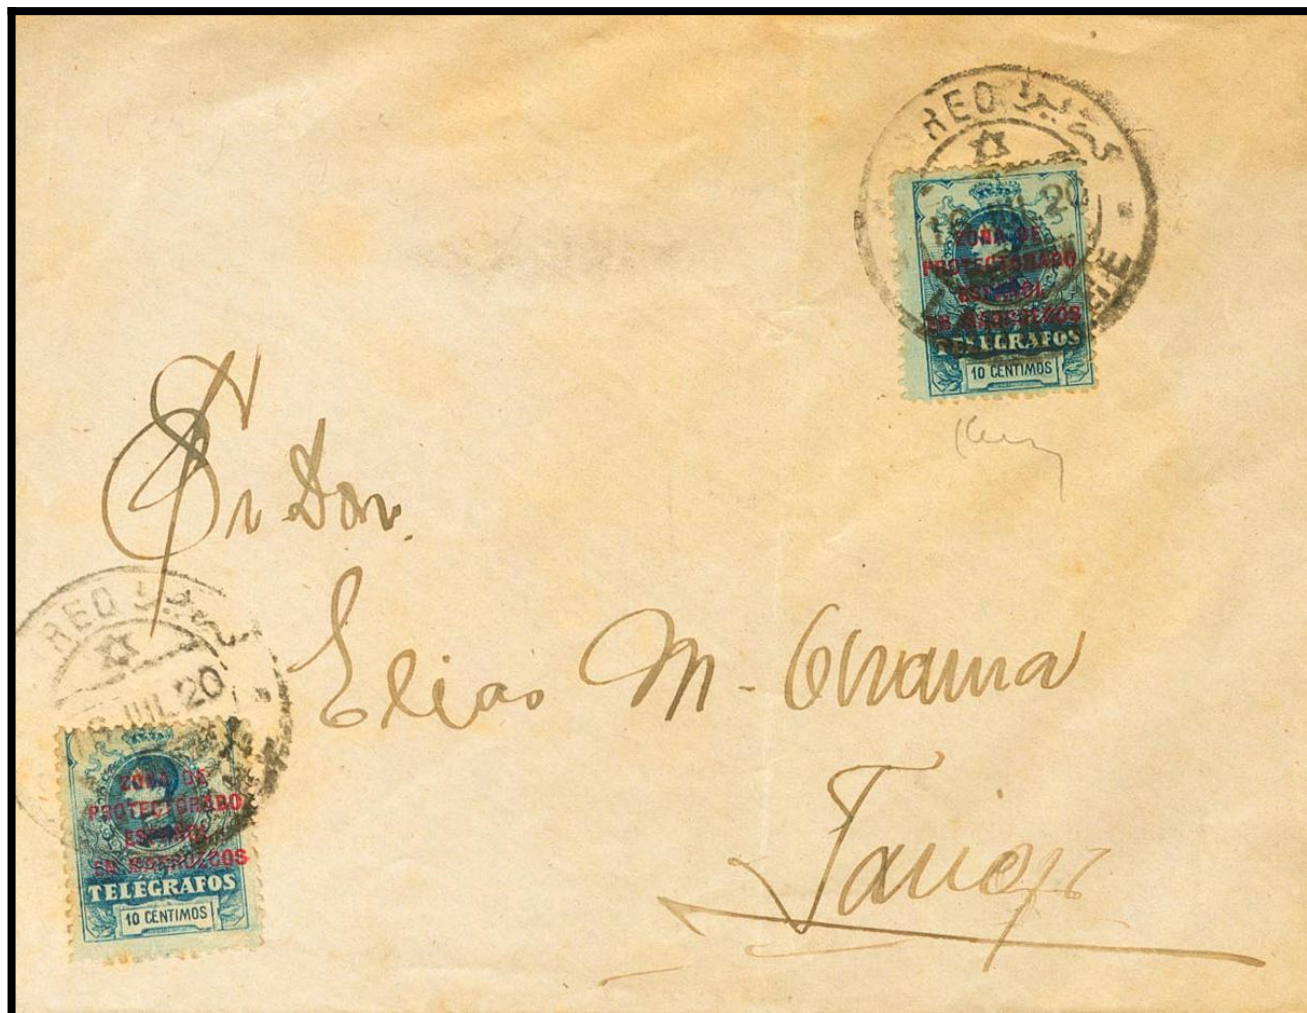 REO بريد
20
ZONA DE
PROTECTORADO
ESPAÑOL
EN MARRUECOS
TELÉGRAFOS
10 CÉNTIMOS
Sr Don.
Elias M.
REO بريد
JUL 20
ZONA DE
PROTECTORADO
ESPAÑOL
EN MARRUECOS
TELÉGRAFOS
10 CÉNTIMOS